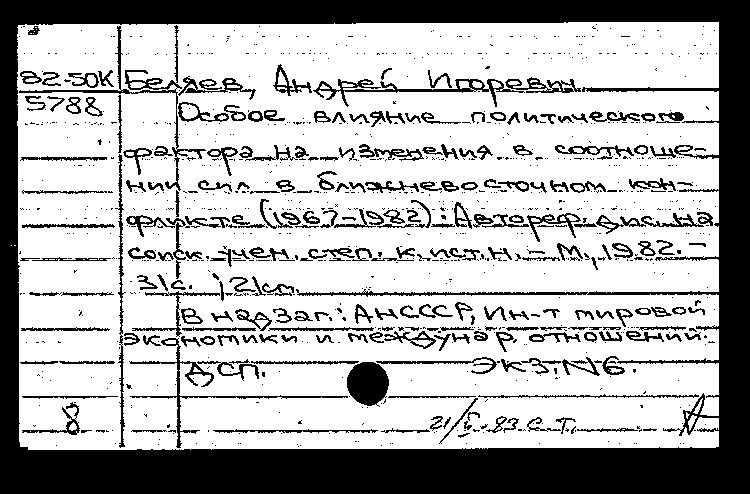 82-50К Беляев, Андрей Игоревич
5788 Особое влияние политического
фактора на изменения в соотноше-
нии сил в ближневосточном кон-
фликте (1967-1982): Автореф. дис. на
соиск. учен. степ. к. ист. н. - М., 1982. -
31с. ; 21см.
В надзаг.: АН СССР, Ин-т мировой
экономики и междунар. отношений.
ДСП. ЭКЗ. N6.
8 21/V-83 С.Т.